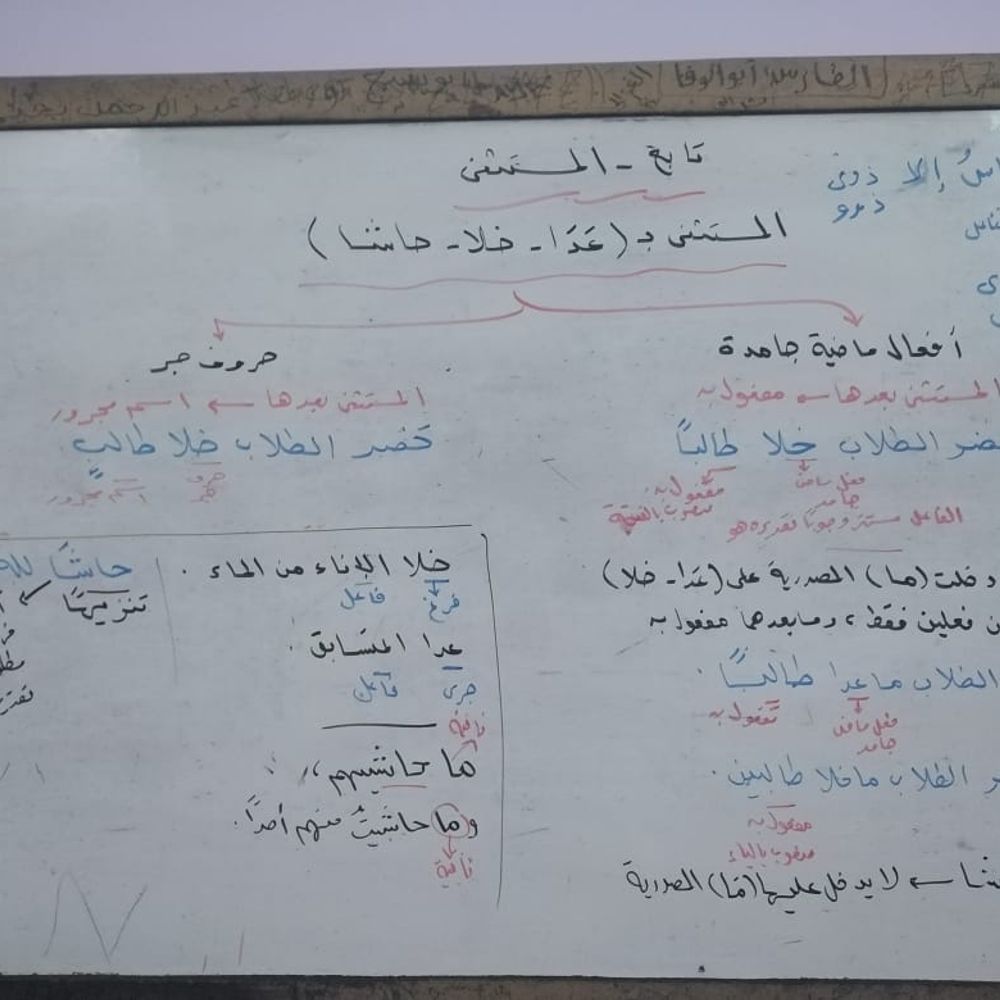 الضارس أبو الوفا
تابع - المستثنى
المستثنى بـ (عَدَا - خلا - حاشا)
إلا ذوى
ذوو
أفعال ماضية جامدة
المستثنى بعدها ← مفعول به
الطلاب خلا طالباً
فعل ماض جامد
مفعول به منصوب بالفتحة
الفاعل مستتر وجوباً تقديره هو
دخلت (ما) المصدرية على (عَدَا - خلا)
فعلين فقط، ومابعدهما مفعول به
الطلاب ماعدا طالباً.
فعل ماض جامد
مفعول به
الطلاب ماخلا طالبين.
مفعول به
منصوب بالياء
← لا يدخل عليها (مَا) المصدرية
حروف جر
المستثنى بعدها ← اسم مجرور
حَضر الطلاب خلا طالبٍ
حرف جر
اسم مجرور
خلا الإناء من الماء.
فرغ فاعل
عدا المتسابق.
جرى فاعل
نافية
ما حاشيتهم،،
وما حاشيتُ منهم أحداً.
نافية
حاشا لله
تنزيهًا